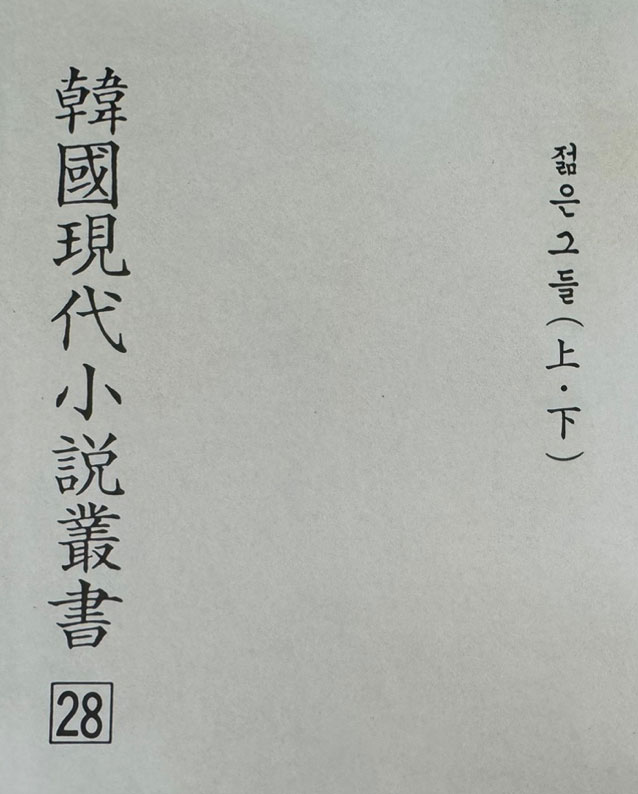 韓國現代小説叢書 28
젊은그들(上·下)